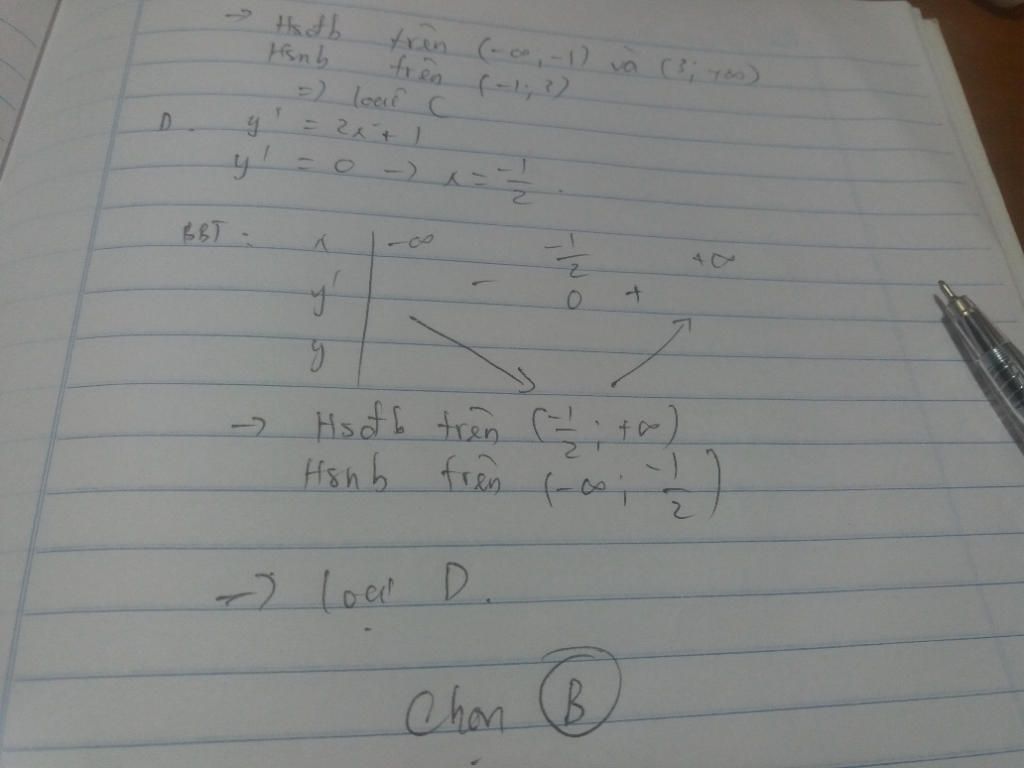 → Hsđb trên (-∞; -1) và (3; +∞)
Hsnb trên (-1; 3)
=> loại C
D. y' = 2x + 1
y' = 0 → x = -1/2.
BBT: x -∞ -1/2 +∞
y' - 0 +
y
→ Hsđb trên (-1/2; +∞)
Hsnb trên (-∞; -1/2)
→ loại D.
Chọn B